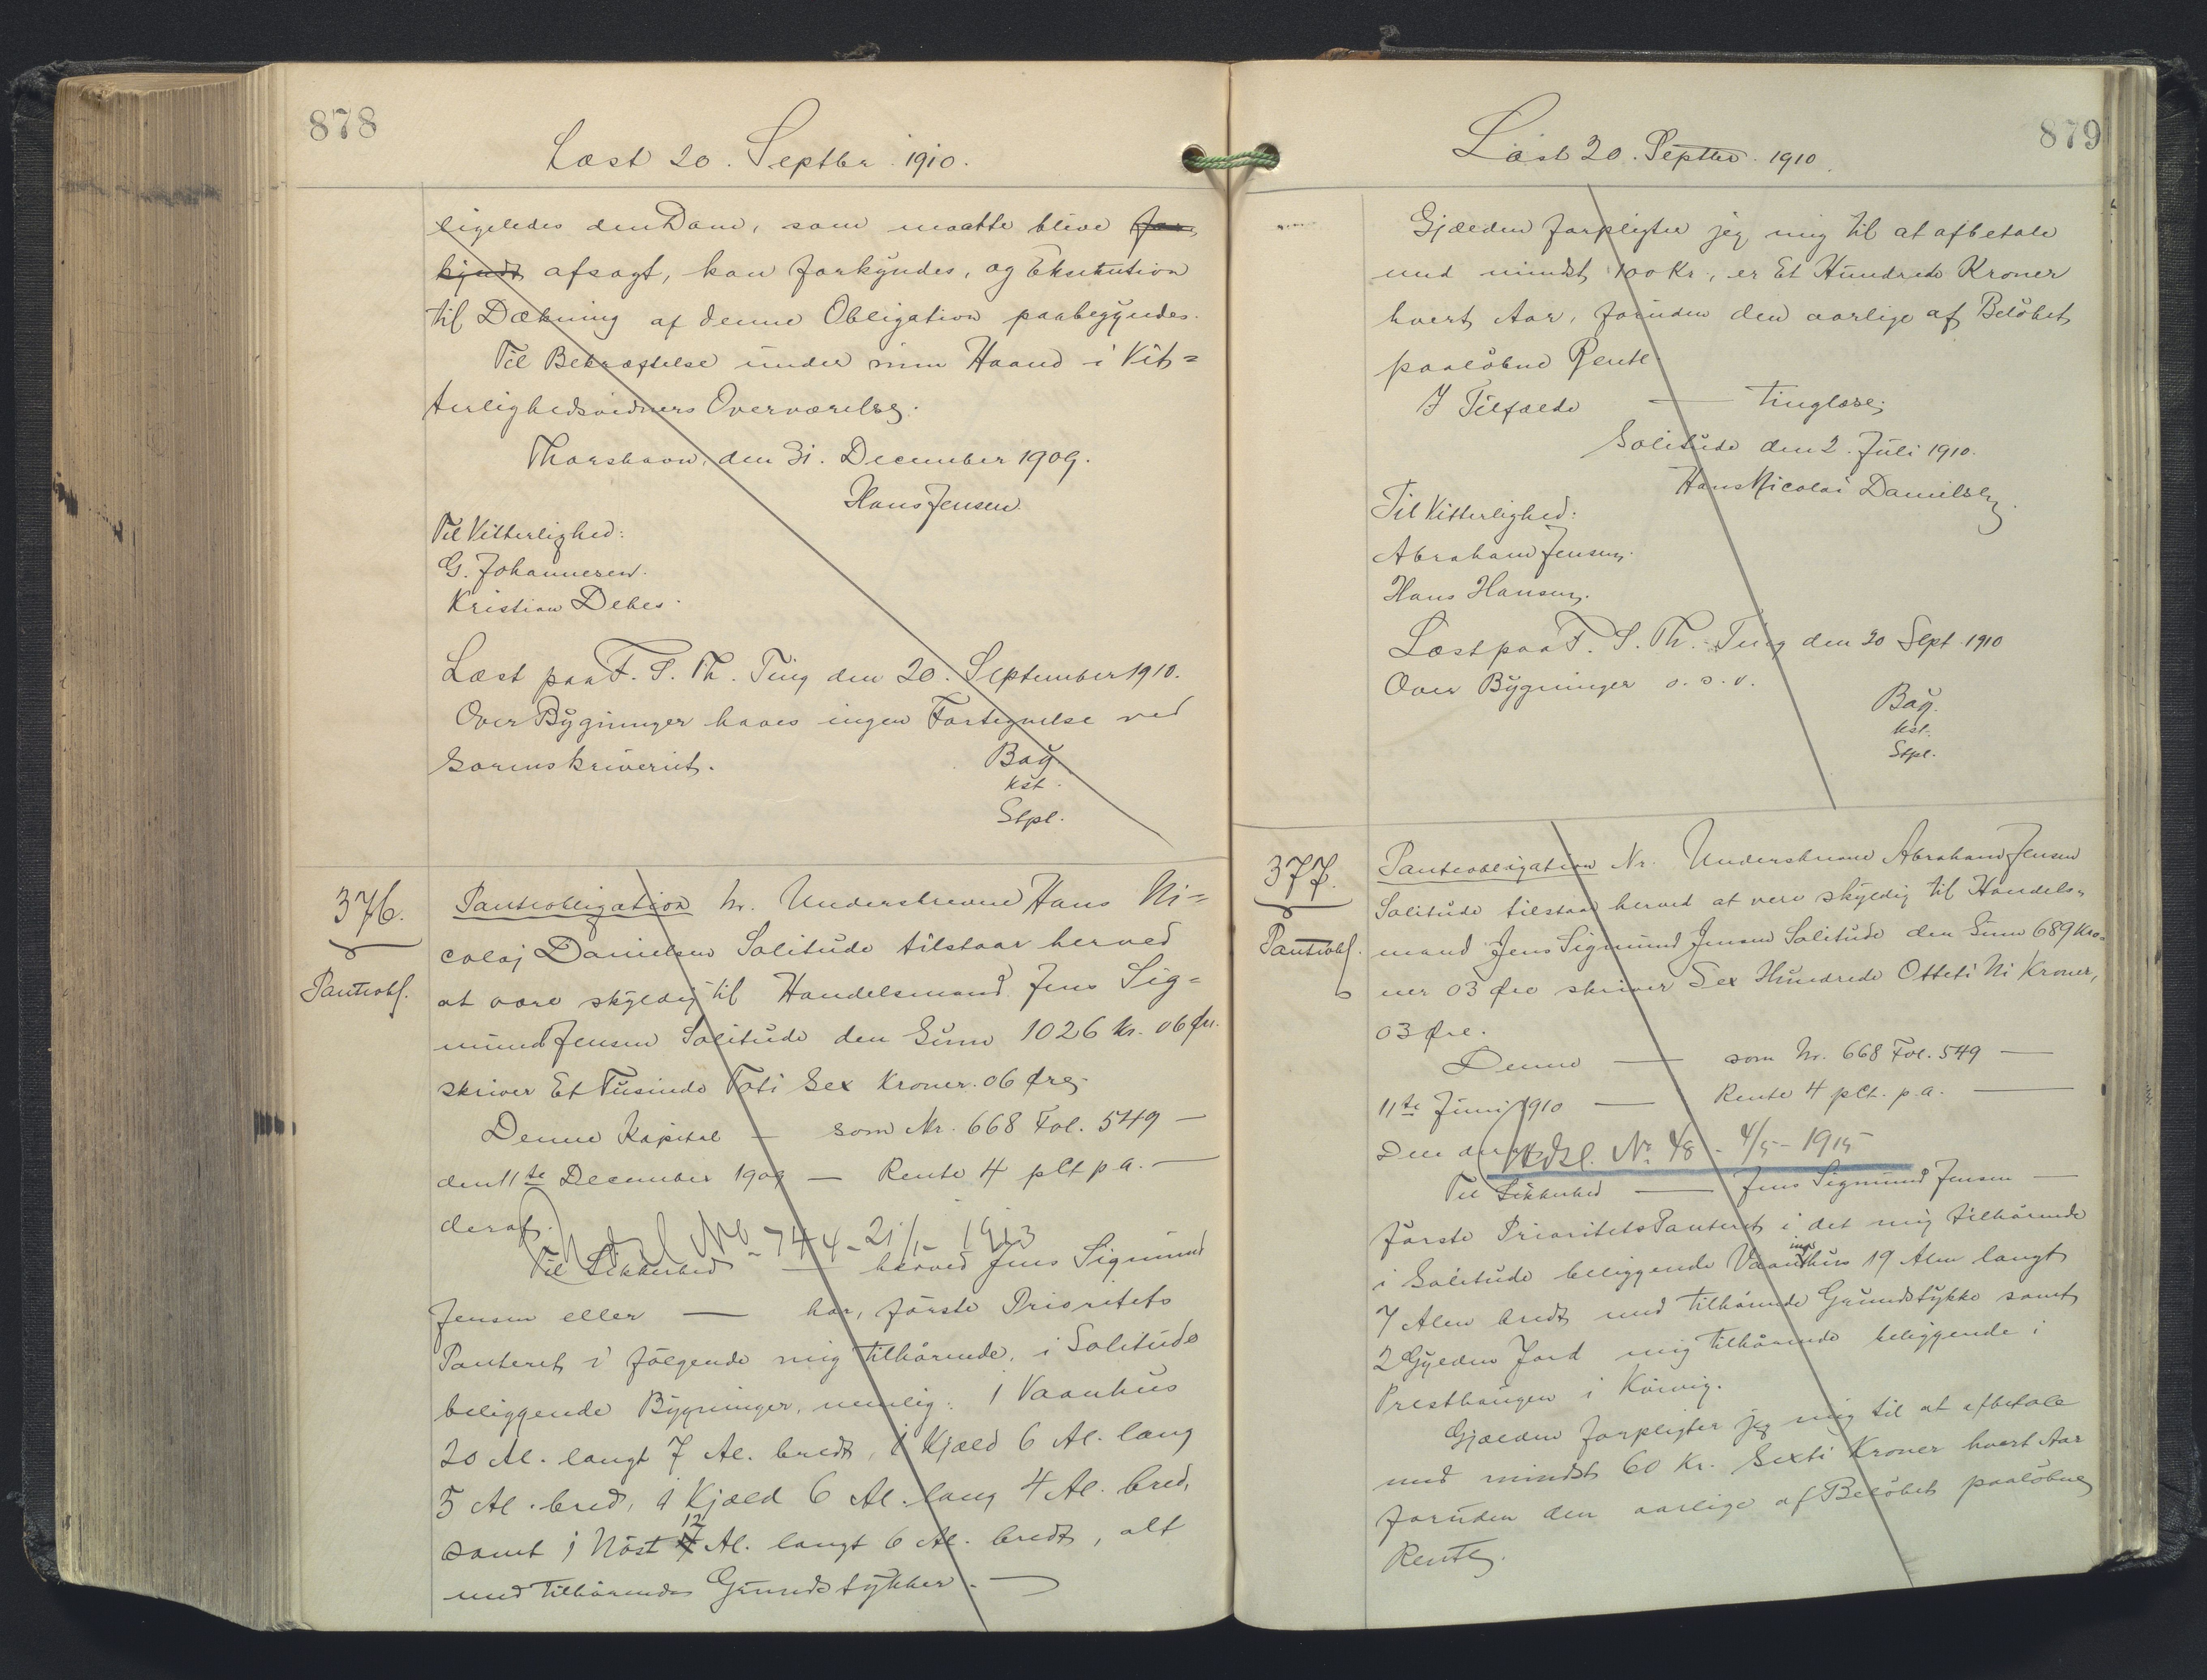 878
Læst 20. Septbr. 1910.
ligeledes den Dom, som maatte blive for-
kyndt afsagt, kan forkyndes, og Eksekution
til Dækning af denne Obligation paabegyndes.
Til Bekræftelse under min Haand i Vit=
terlighedsvidners Overværelse.
Thorshavn, den 31. December 1909.
Hans Jensen.
Til Vitterlighed:
G. Johannesen.
Kristian Debes.
Læst paa F. S. Th. Ting den 20. September 1910.
Over Bygninger haves ingen Fortegnelse ved
Sorenskriveriet.
Bay
kst.
Stpl.
376.
Pantobl.
Panteobligation Nr. Underskrevne Hans Ni=
colaj Danielsen Solitude tilstaar herved
at være skyldig til Handelsmand Jens Sig=
mund Jensen Solitude den Sum 1026 Kr. 06 Øre.
skriver Et Tusinde Toti Sex Kroner 06 Øre.
Denne Kapital — som Nr. 668 Fol. 549 —
den 11te December 1909 — Rente 4 pCt p.a. —
deraf.
Udsl No 744 - 21/1 - 1913
Til Sikkerhed — herved Jens Sigmund
Jensen eller — har, første Prioritets
Panteret i følgende mig tilhørende, i Solitude
beliggende Bygninger, nemlig: 1 Vaanhus
20 Al. langt 7 Al. bredt, 1 Kjæld 6 Al. lang
5 Al. bred, 1 Kjæld 6 Al. lang 4 Al. bred,
samt 1 Nöst 12 Al. langt 6 Al. bredt, alt
med tilhørende Grundstykker. —
879
Læst 20. Septbr. 1910.
Gjælden forpligter jeg mig til at afbetale
med mindst 100 Kr., er Et Hundrede Kroner
hvert Aar, foruden den aarlige af Beløbet
paaløbne Rente.
I Tilfælde — tinglæse.
Solitude den 2. Juli 1910.
Hans Nicolai Danielsen
Til Vitterlighed:
Abraham Jensen.
Hans Hansen.
Læst paa F. S. Th. Ting den 20 Sept 1910
Over Bygninger o. s. v.
Bay.
kst.
Stpl.
377.
Pantobl.
Panteobligation Nr. Underskrevne Abraham Jensen
Solitude tilstaar herved at være skyldig til Handels-
mand Jens Sigmund Jensen Solitude den Sum 689 Kro-
ner 03 Øre skriver Sex Hundrede Otteti Ni Kroner,
03 Øre.
Denne — som Nr. 668 Fol. 549 —
11te Juni 1910 — Rente 4 pCt. p.a. —
Den
Udsl. No 48 - 4/5 - 1915
Til Sikkerhed — Jens Sigmund Jensen —
første Prioritets Panteret i det mig tilhørende
i Solitude beliggende Vaaningshus 19 Alen langt
7 Alen bredt med tilhørende Grundstykke samt
2 Gylden Jord mig tilhørende beliggende i
Presthaugen i Kvivig.
Gjælden forpligter jeg mig til at afbetale
med mindst 60 Kr. Sexti Kroner hvert Aar
foruden den aarlige af Beløbet paaløbne
Rente.